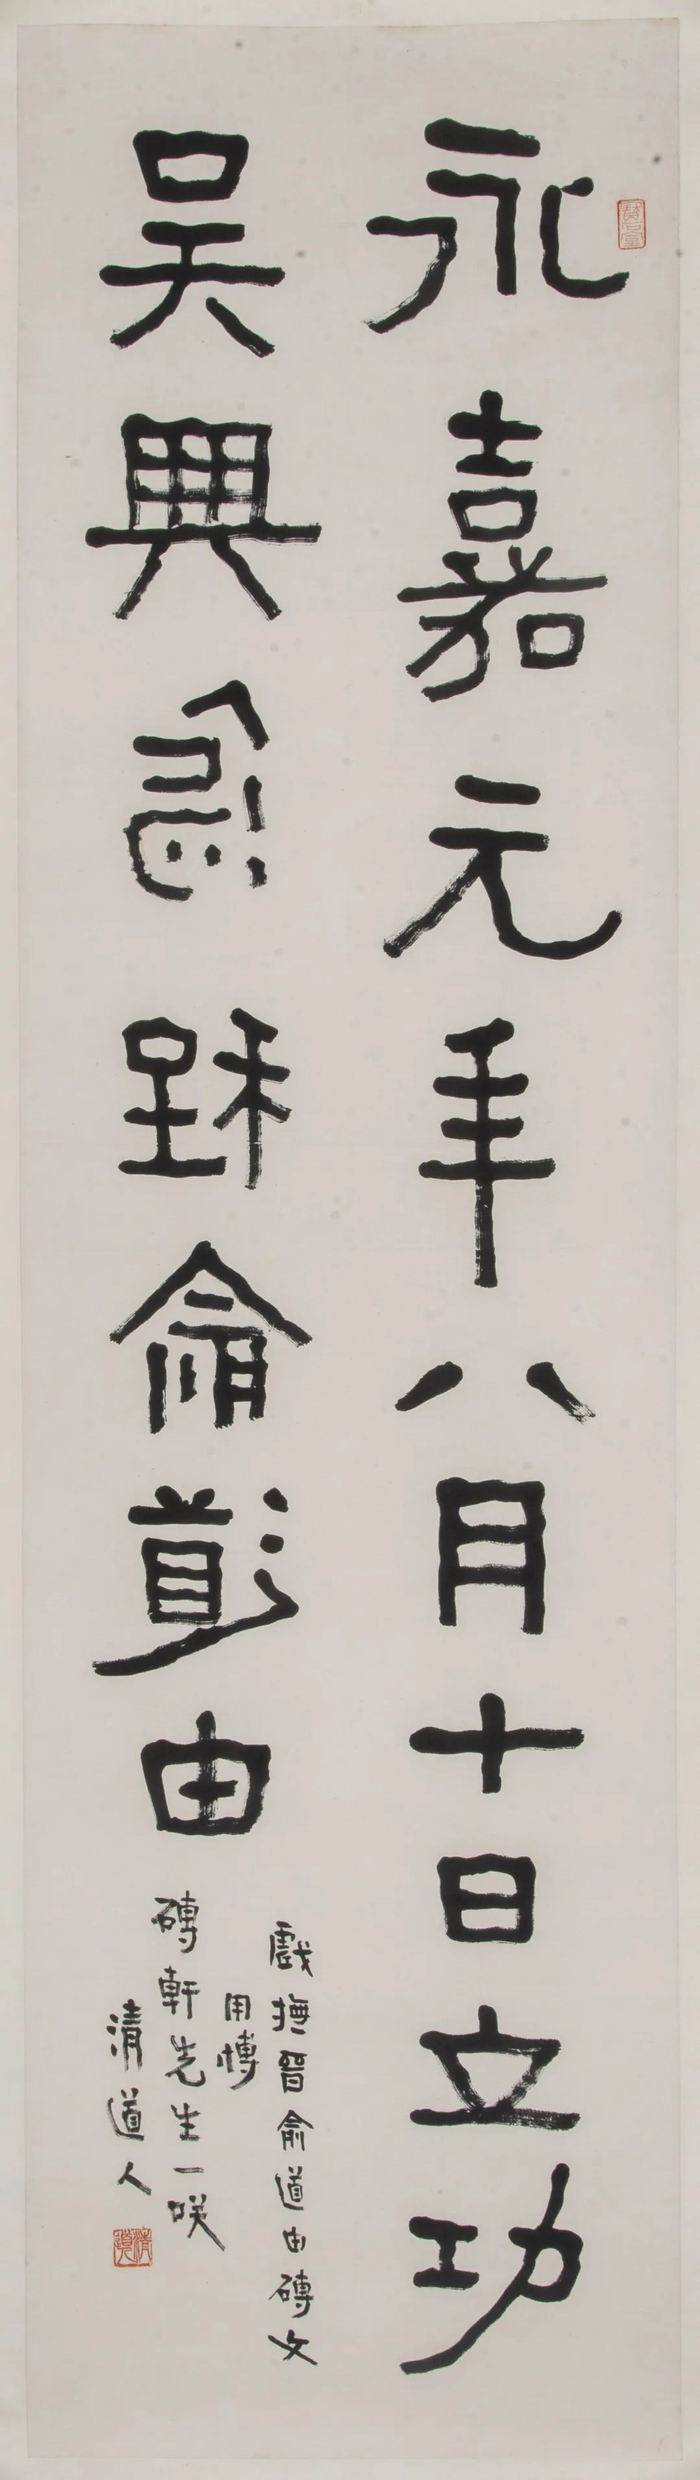 永嘉元年八月十日立功
吳興烏程俞道由
戲撫晉俞道由磚文
用愽
磚軒先生一咲
清道人